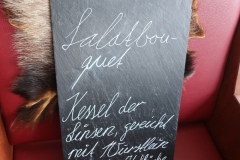 Salatbou-
quet
Kessel der
Linsen, gereicht
mit Würstlein